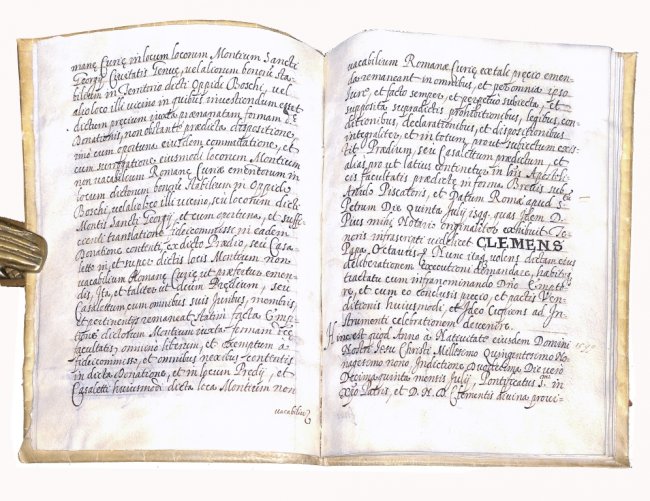 manę Curię in locum locorum Montium Sancti
Georgÿ Civitatis Genuę, vel aliorum bonorū Sta-
bilium in Territorio dicti Oppidi Boschi, vel
alio loco illi vicino in quibus investiendum esset
dictum precium iuxta prænarratam formam
Donationis, non obstante prædicta dispositione,
cum oportuna eiusdem commutatione, et
cum surrogatione eiusmodi locorum Montium
non vacabilium Romanę Curię emendorum in
locum dictorum bonorū Stabilium in Oppido
Boschi, vel alio loco illi vicino, seu locorum dicti
Montis Sancti Georgÿ, et cum oportuna, et suffi-
cienti translatione fideicommissi in eadem
Donatione contenti, ex dicto Prædio, seu Casa-
letto in, et super dictis locis Montium non
vacabilium Romanę Curię ut præfertur emen-
dis, Ita, et taliter ut dictum Prædium, seu
Casalettum cum omnibus suis Iuribus, membris,
et pertinentijs remaneat statim facta Empti-
one dictorum Montium iuxta formam
facultatis omnino liberum, et exemptum à
fideicommisso, et omnibus nexibus contentis
in dicta Donatione, et in locum Predÿ, et
Casaletti huiusmodi dicta loca Montium non
vacabiliū
vacabilium Romanę Curię ex tale precio emen-
da remaneant in omnibus, et per omnia ipso
Iure, et facto semper, et perpetuo subiecta, et
supposita supradictis prohibitionibus, legibus, con-
ditionibus, declarationibus, et dispositionibus
integraliter, et in totum, prout subiectum exis-
tit Prædium, seu Casalettum prædictum, et
alias prout latius continetur in
facultatis prædictę in forma Brevis
Anulo Piscatoris, et Datum Romę apud S.
Petrum Die Quinta Iulÿ 1599 quas idem D.
Pius mihi Notario originaliter exhibuit
noris infrascripti videlicet CLEMENS
Papa Octavus Nunc itaq. volens dictam eius
deliberationem Executioni demandare, habito
tractatu cum infranominando Dño Empto-
re, et cum eo concluso precio, et pactis Ven-
ditionis huiusmodi, et Ideo Cupiens ad In-
strumenti celebrationem devenire.
Hinc est quod Anno a Nativitate eiusdem Domini
Nostri Iesu Christi Millesimo Quingentesimo No-
nagesimo nono, Indictione Duodecima Die vero
Decima quinta mensis Iulÿ, Pontificatus in
Patris, et D. N. D. Clementis divina provi-